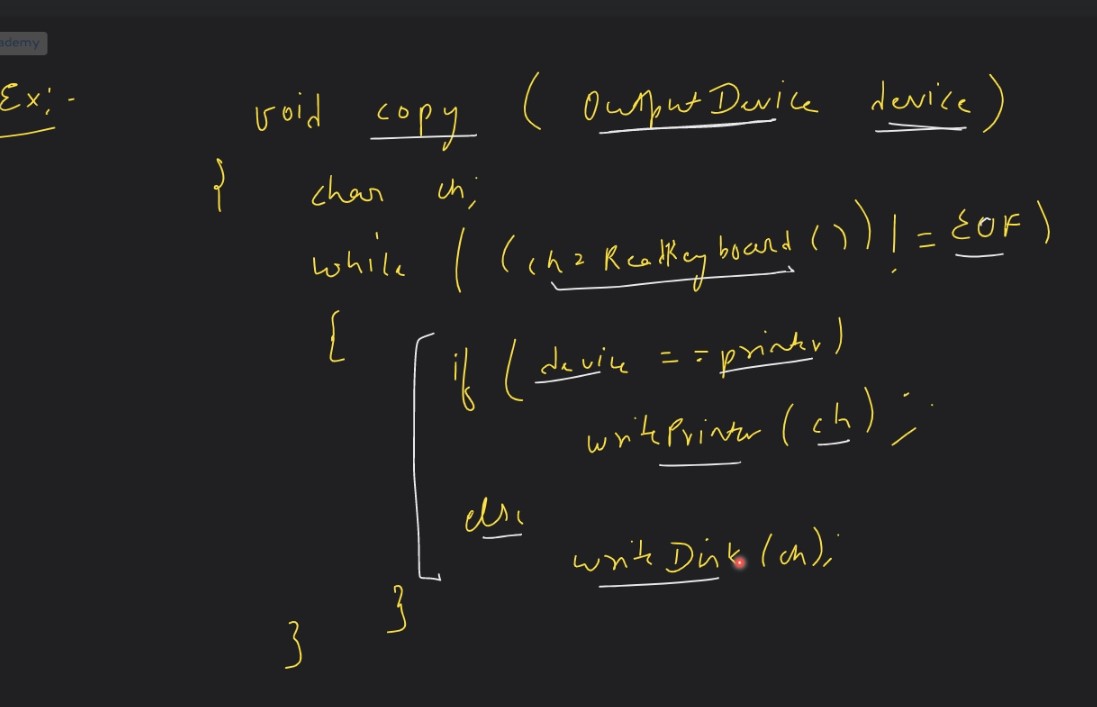 ademy
Ex:-
void copy ( OutputDevice device )
{ char ch;
while ( ( ch = ReadKeyboard ( ) ) ! = EOF )
{
if ( device = = printer )
writePrinter ( ch ) ;
else
writeDisk ( ch );
}
}